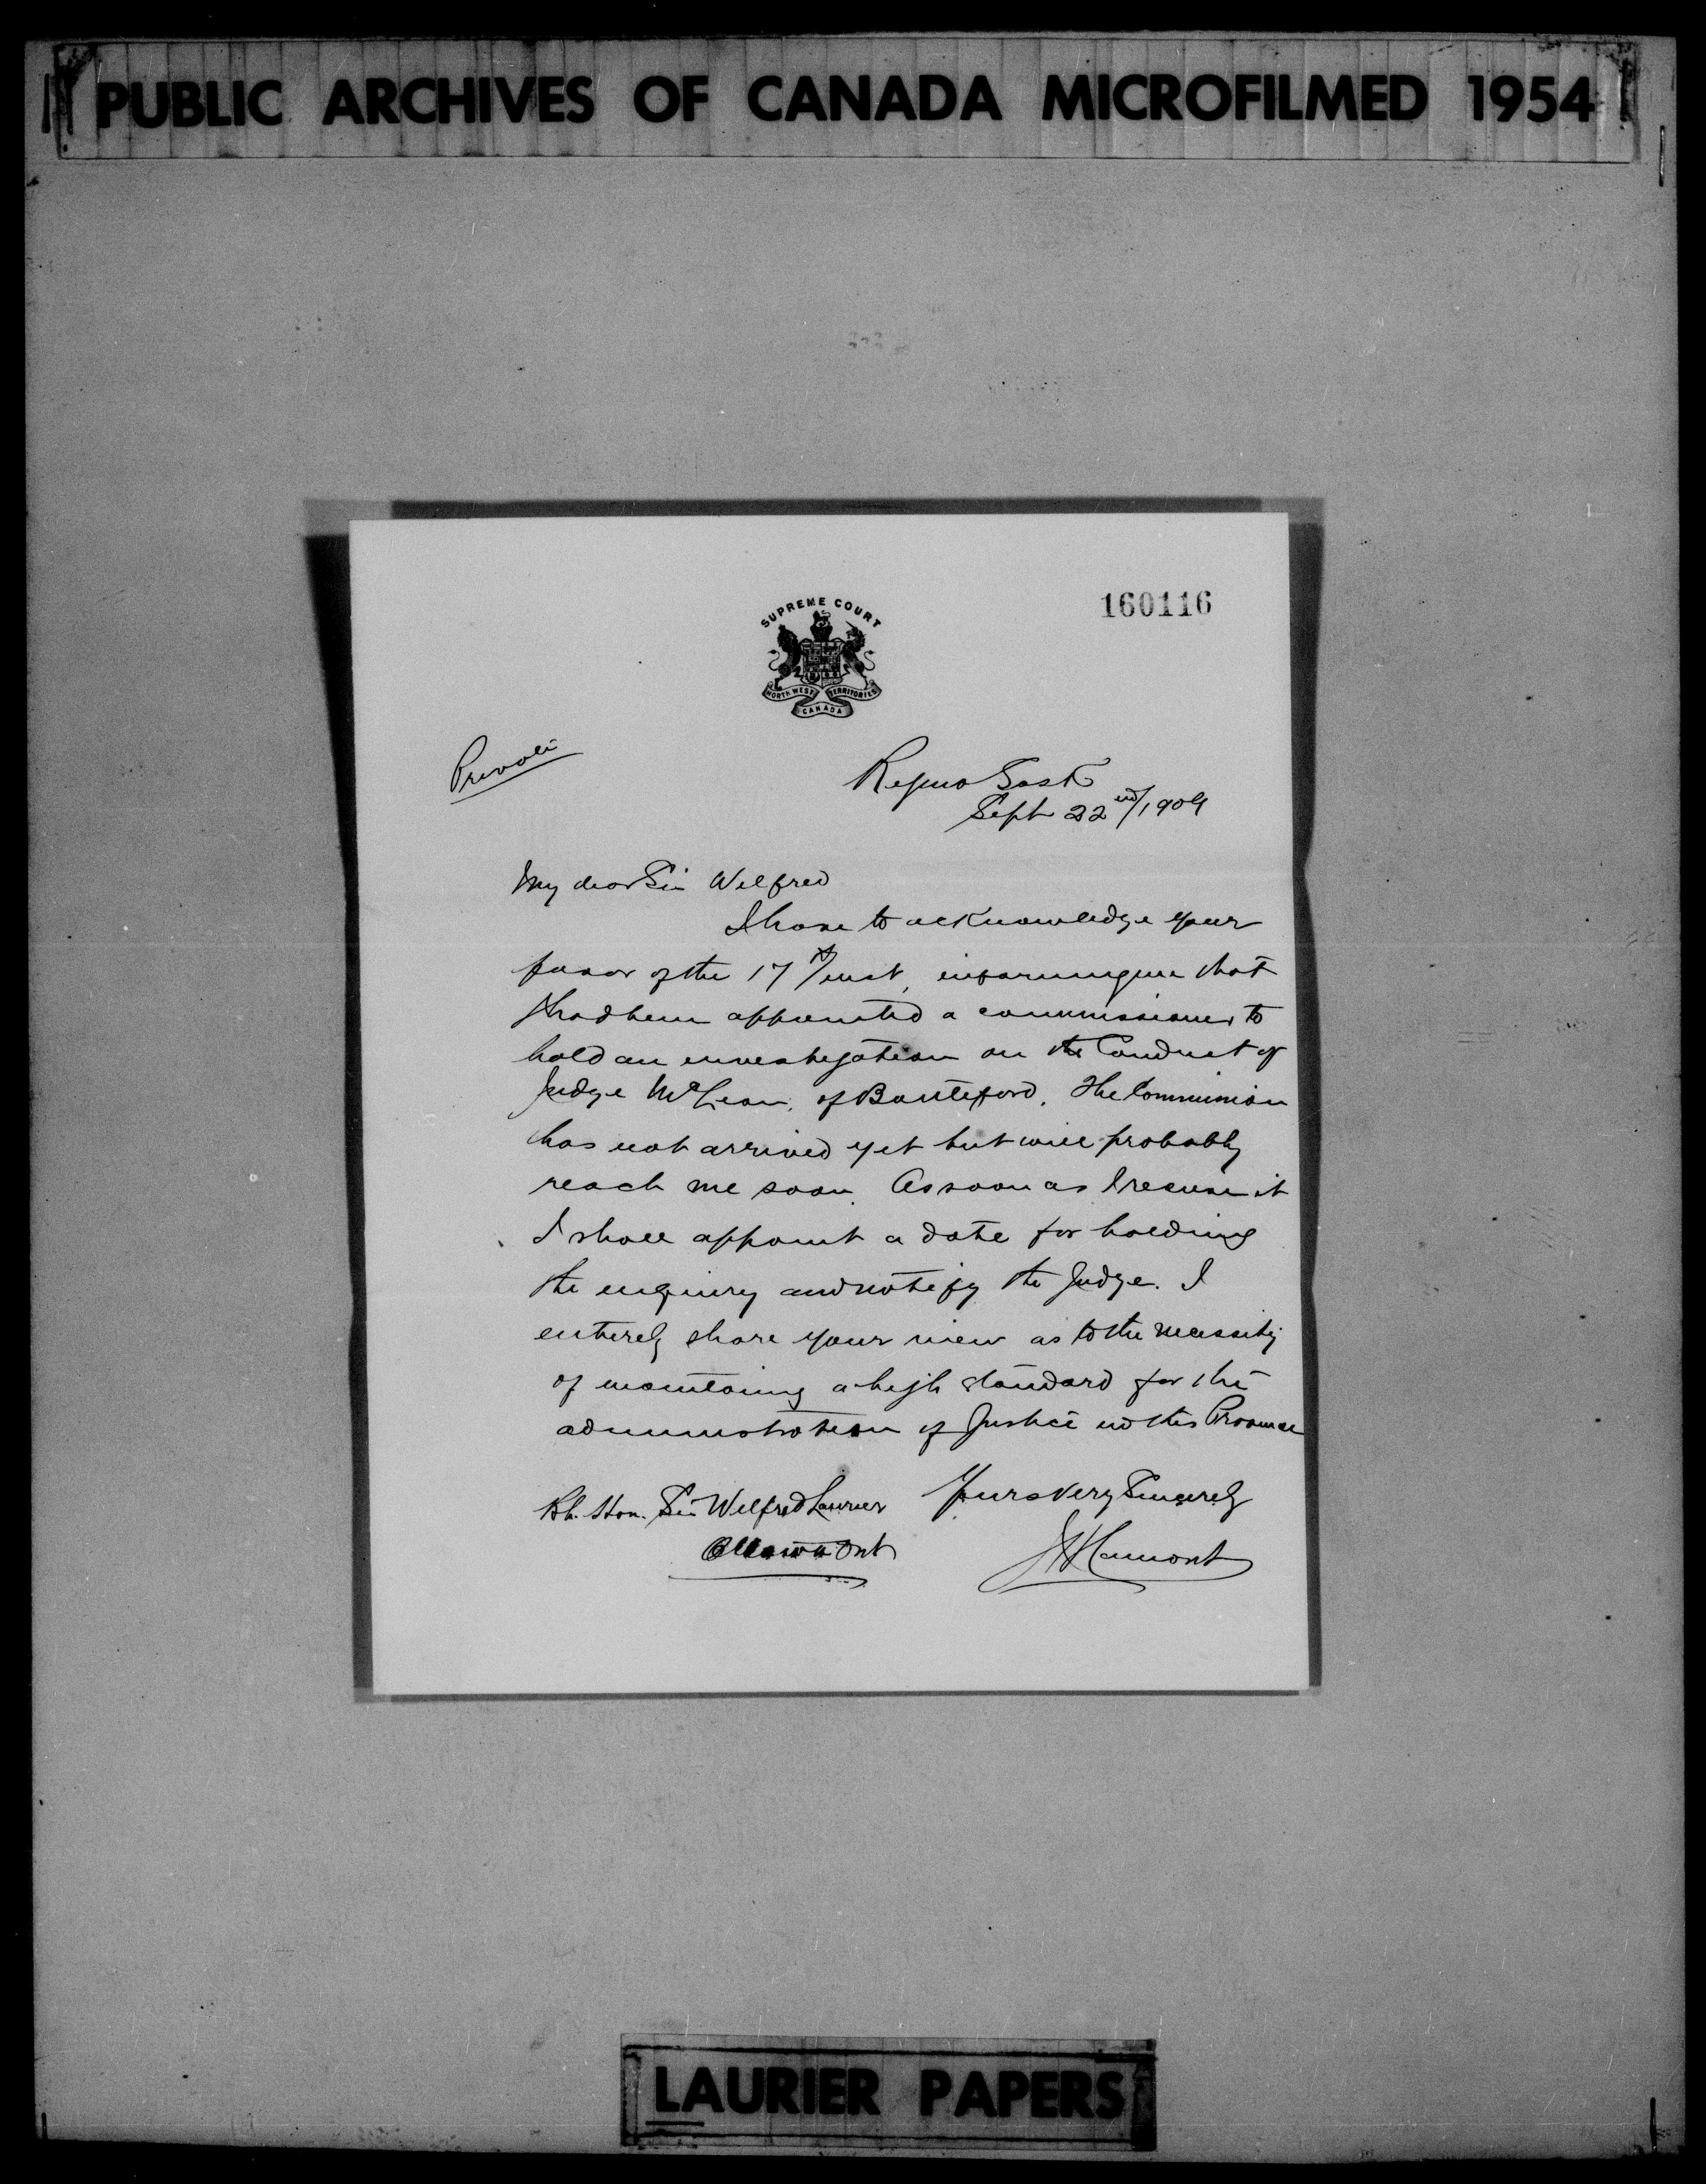 PUBLIC ARCHIVES OF CANADA MICROFILMED 1954
160116
SUPREME COURT
NORTH WEST TERRITORIES
CANADA
Private
Regina Sask
Sept 22nd/1909
My dear Sir Wilfred
I have to acknowledge your
favor of the 17th/inst, informing me that
I had been appointed a commissioner to
hold an investigation on the Conduct of
Judge McLean, of Battleford. The Commission
has not arrived yet but will probably
reach me soon. As soon as I receive it
I shall appoint a date for holding
the enquiry and notify the Judge. I
entirely share your view as to the necessity
of maintaining a high standard for the
administration of Justice in this Province
Yours very Sincerely
Rt. Hon. Sir Wilfred Laurier
Ottawa Ont
JH Lamont
LAURIER PAPERS